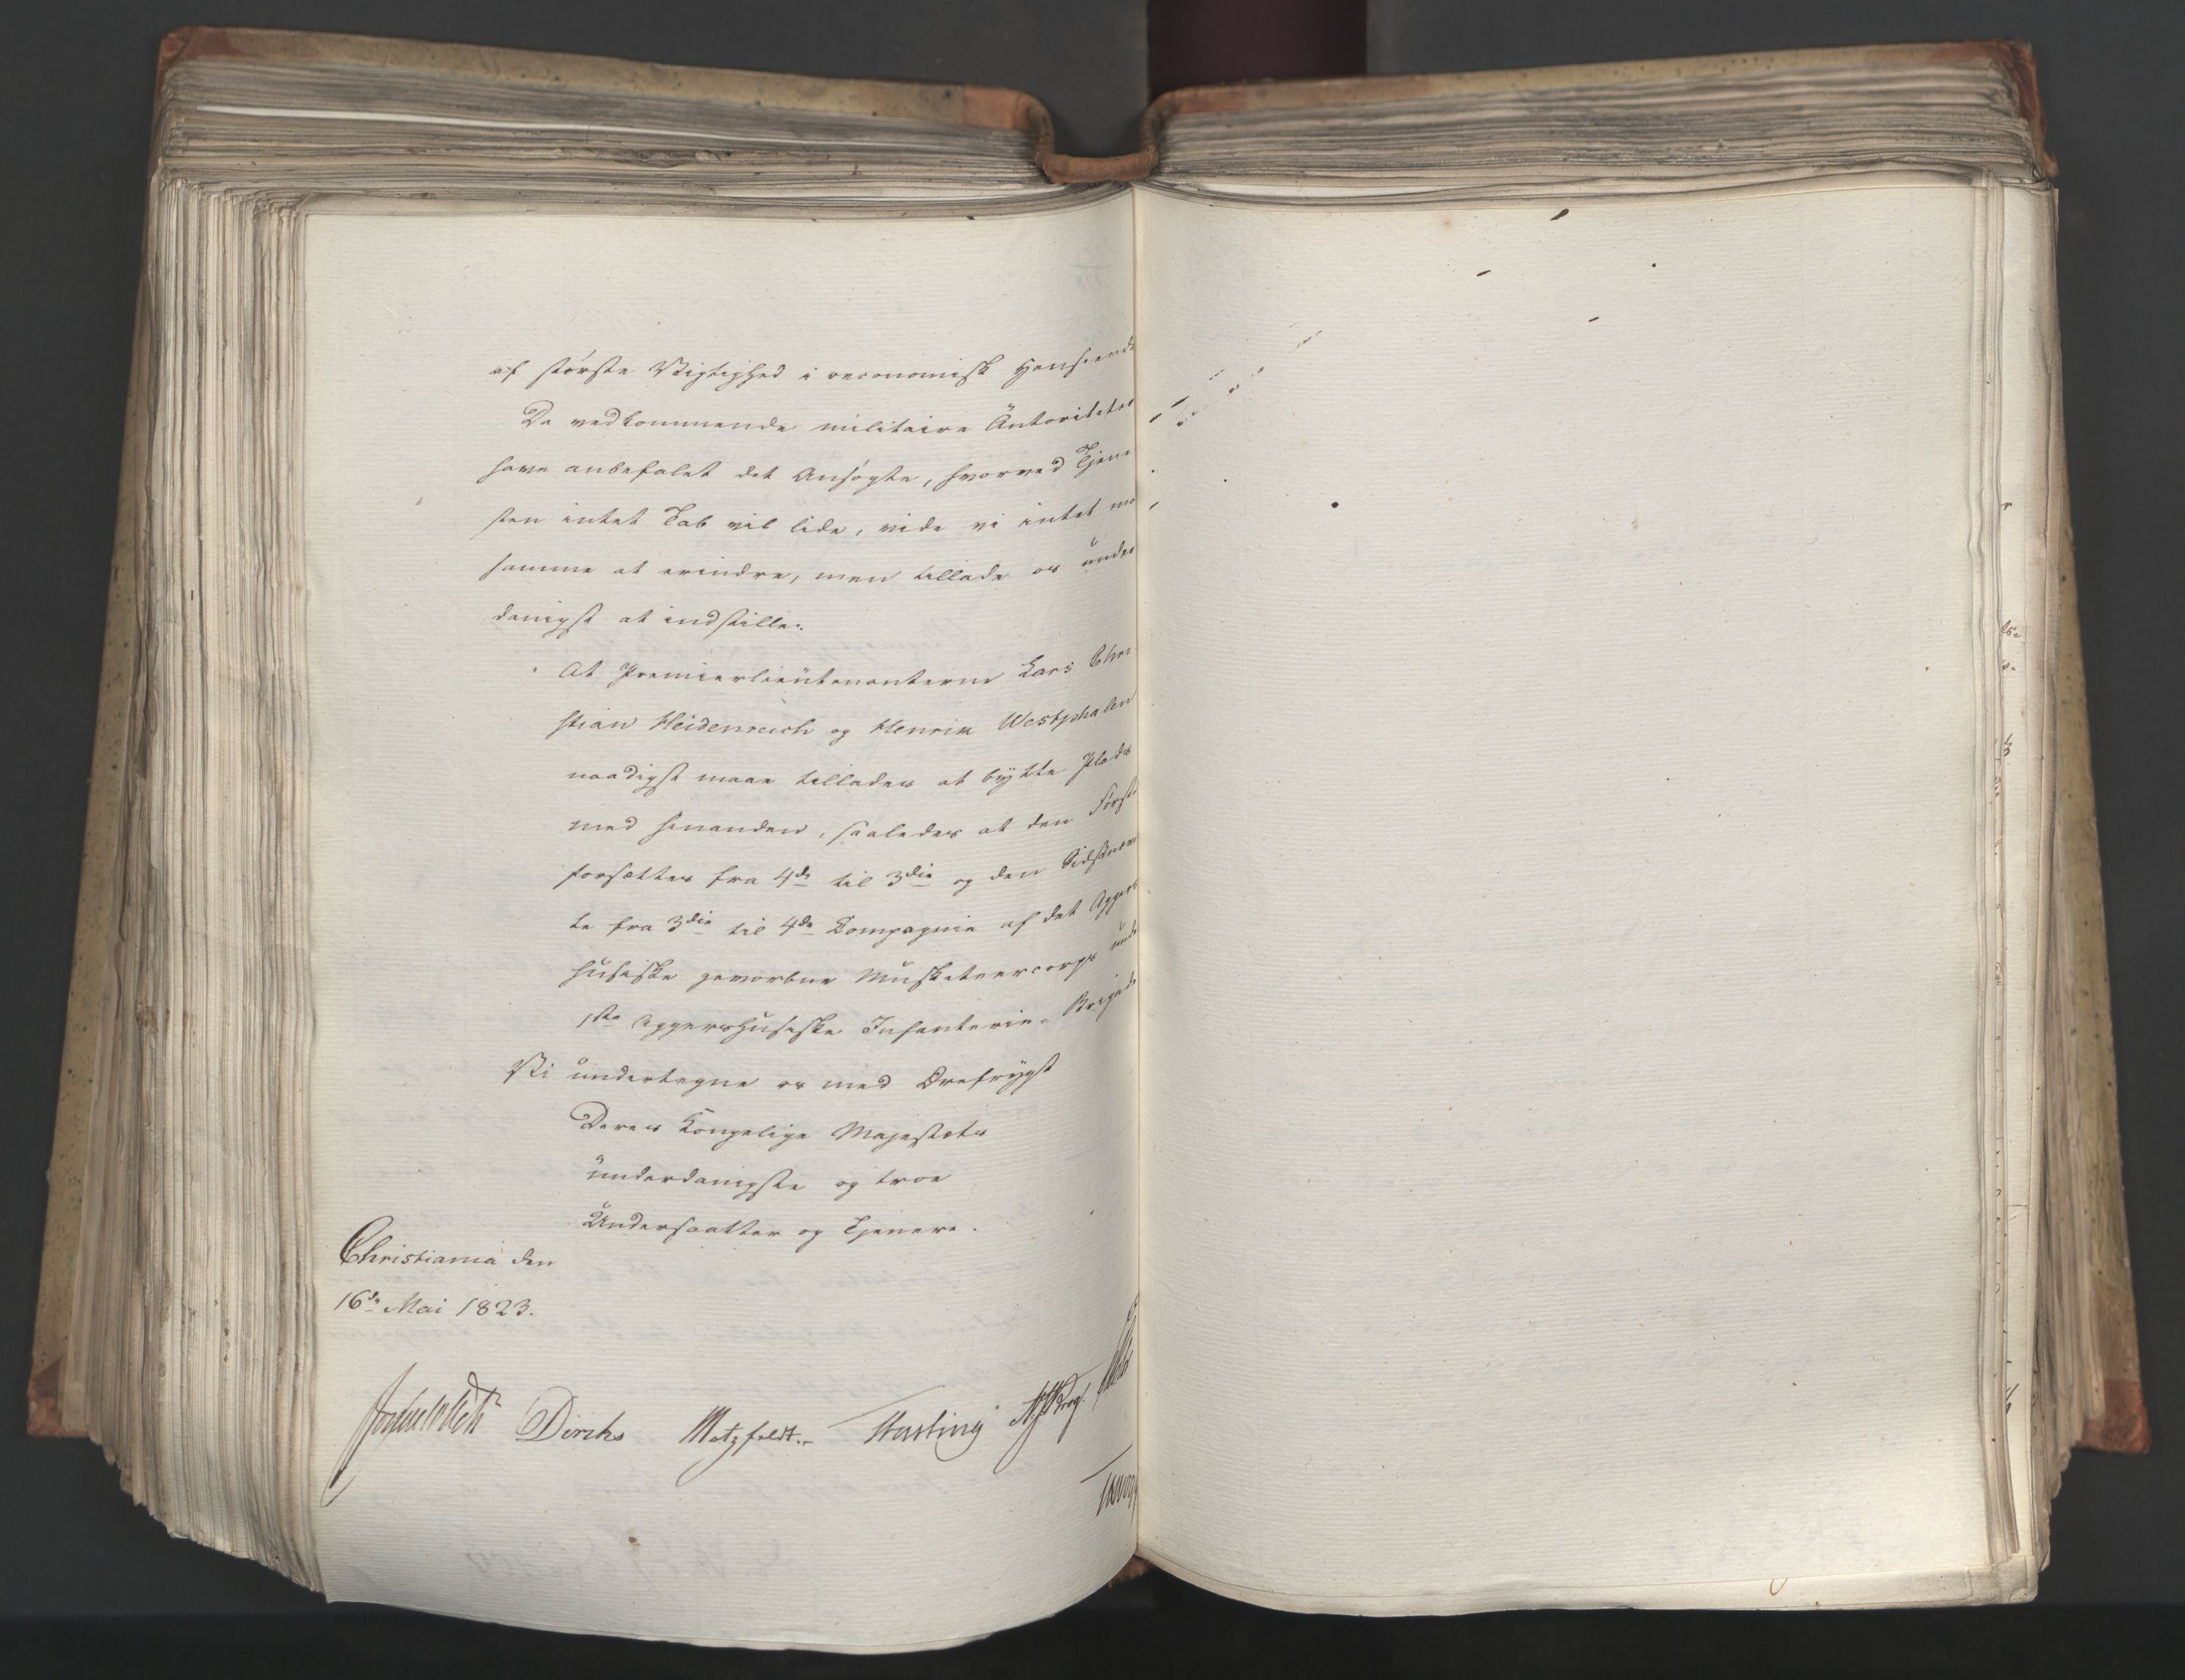 af største Vigtighed i oeconomisk Henseende
Da vedkommende militaire Autoriteter
have anbefalet det Ansøgte, hvorved Tjene
sten intet Tab vil lide, vide vi intet mo
samme at erindre, men tillade os under
danigst at indstille:
At Premierlieutenanterne Lars Chri
stian Heidenreich og Henrik Westphalen
naadigst maae tillades at bytte Plads
med hinanden, saaledes at den Første
forsættes fra 4de til 3die og den Sidstnævn
te fra 3die til 4de Compagnie af det Agger
huusiske gevorbne Musketeercorps unde
1ste Aggershuusiske Infanterie-Brigade
Vi undertegne os med Ærefrygt
Deres Kongelige Majestæts
underdanigste og troe
Undersaatter og Tjenere.
Christiania den
16de Mai 1823.
Diriks Motzfeldt. Hasting